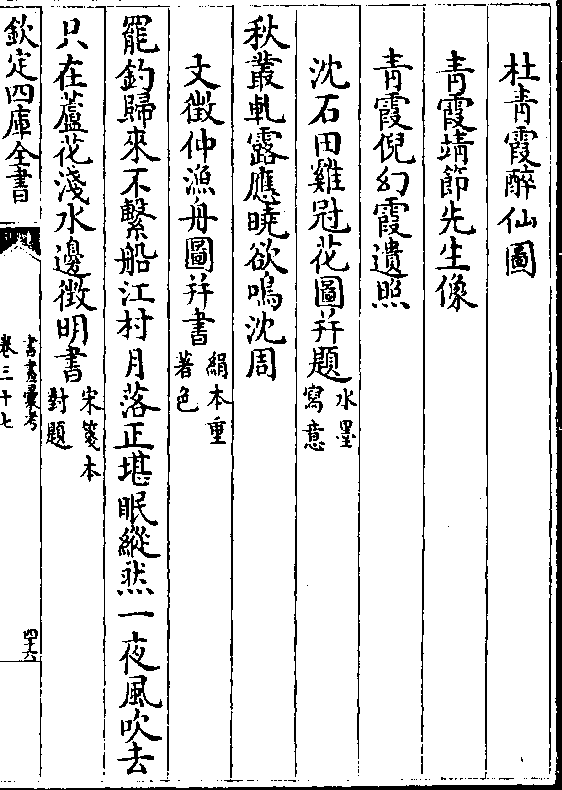 杜青霞醉仙圖
青霞靖節先生像
青霞倪幻霞遺照
沈石田雞冠花圖并題水墨寫意
秋叢軋露應曉欲鳴沈周
文徴仲漁舟圖并書絹本重著色
罷釣歸來不繫船江村月落正堪眠縱然一夜風吹去
只在蘆花淺水邊徴明書宋箋本對題
欽定四庫全書
書畫彚考
卷三十七
四十六